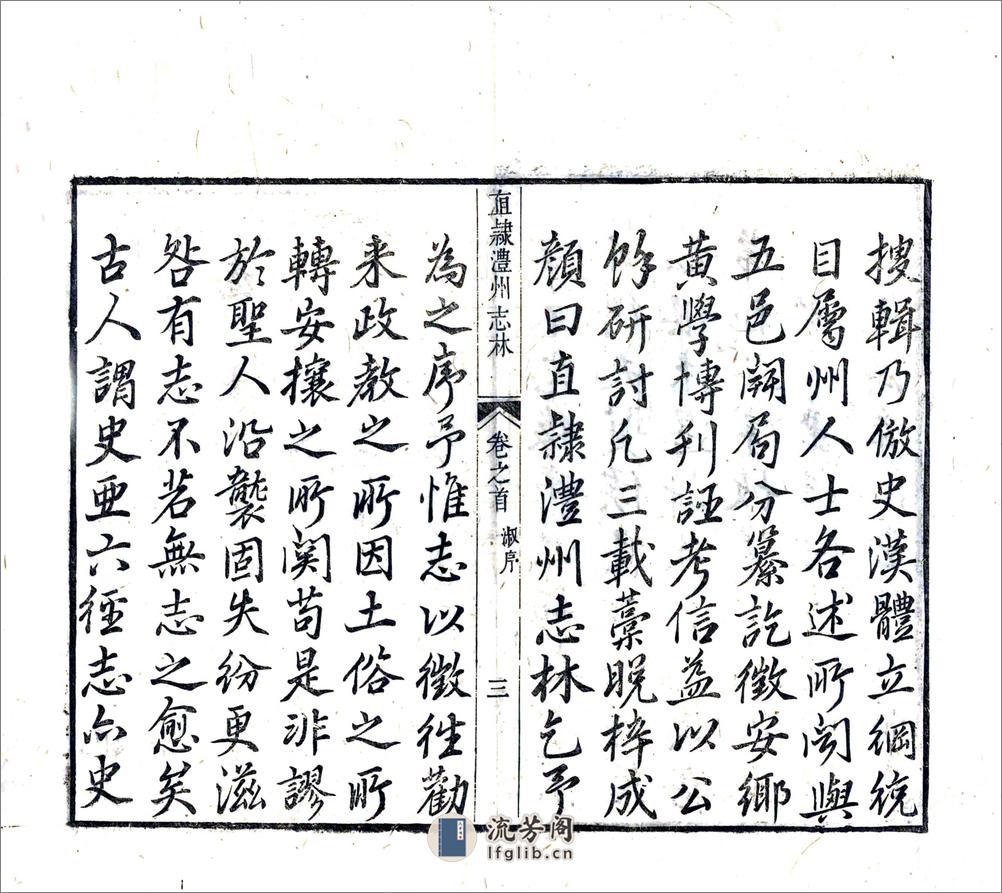 搜輯乃倣史漢體立綱統
目屬州人士各述所聞與
五邑開局分纂訖徵安鄉
黃學博刊誣考信益以公
餘研討凡三載藁脫梓成
顏曰直隷澧州志林乞予
直隷澧州志林
卷之首
淑序
三
為之序予惟志以徵徃勸
来政教之所因土俗之所
轉安攘之所関苟是非謬
於聖人沿襲固失紛更滋
咎有志不若無志之愈矣
古人謂史亜六徑志亦史
流芳阁
lfglib.cn